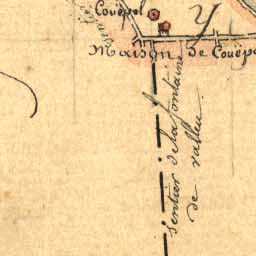 Couëpel
Y
Maison de Couëpe
sentier de la fontaine
de valleu